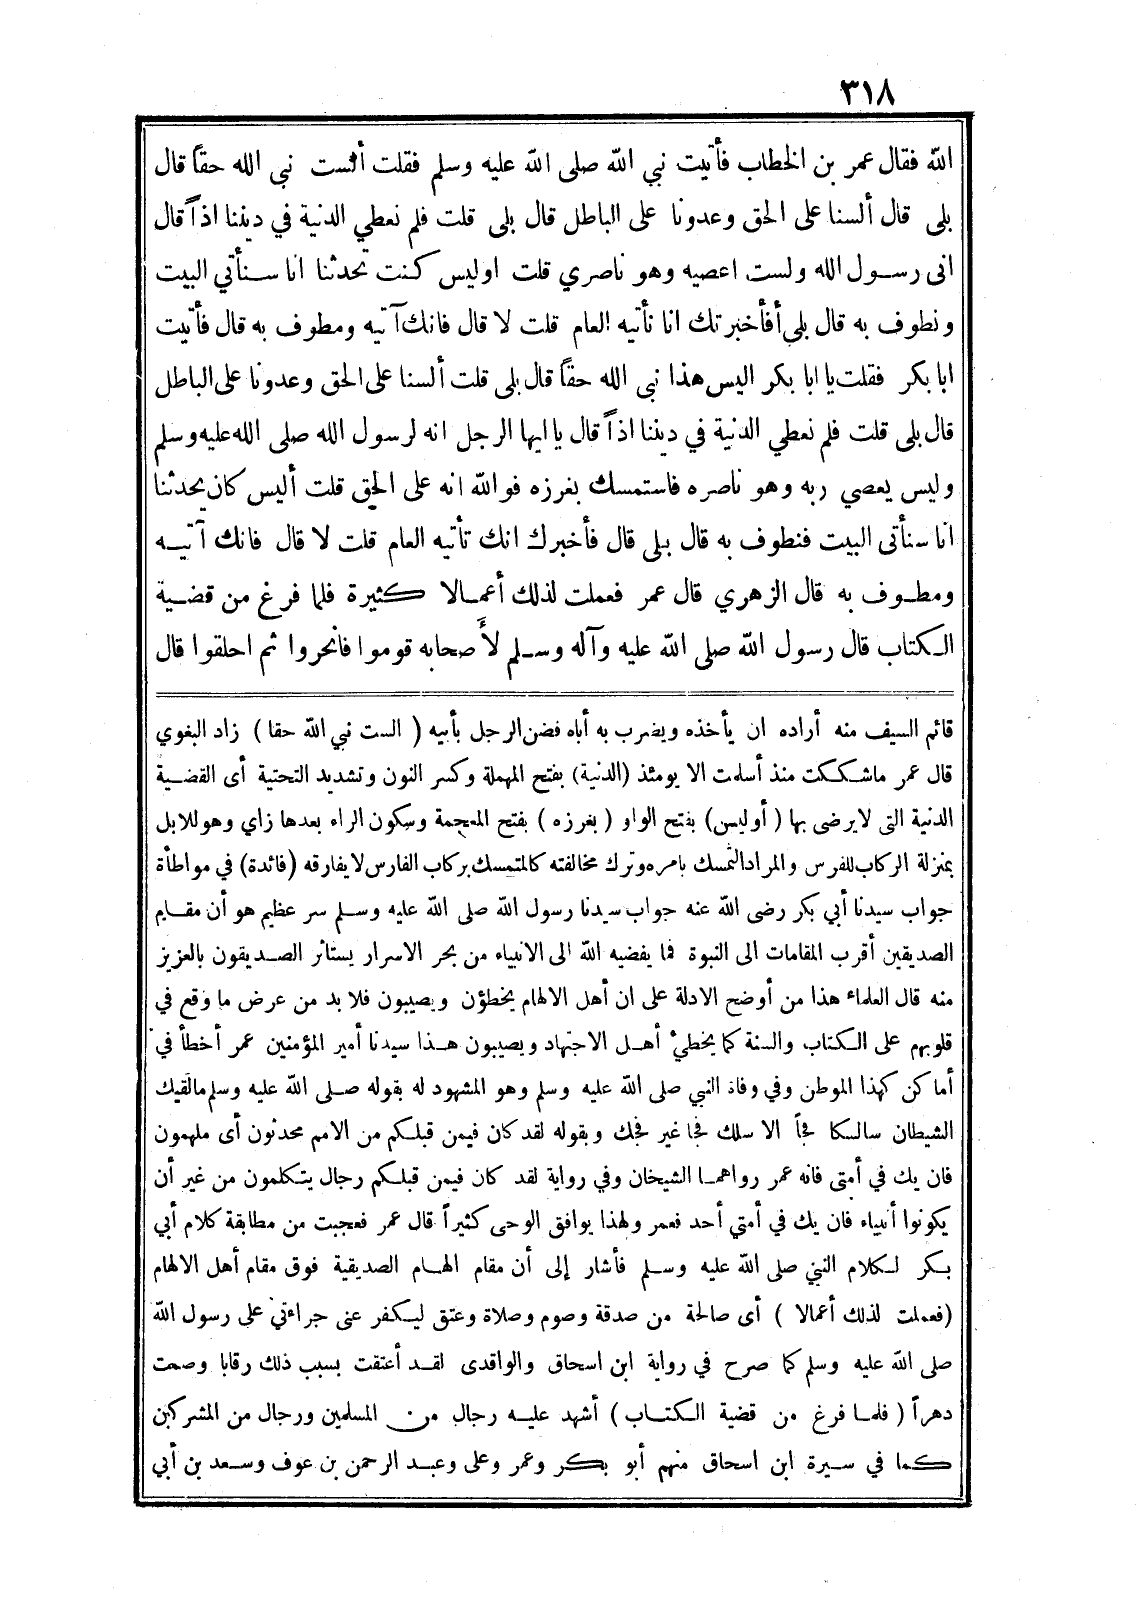 ٣١٨
الله فقال عمر بن الخطاب فأتيت نبي الله صلى الله عليه وسلم فقلت ألست نبي الله حقاً قال
بلى قال ألسنا على الحق وعدونا على الباطل قال بلى قلت فلم نعطي الدنية في ديننا اذاً قال
انى رسول الله ولست اعصيه وهو ناصري قلت اوليس كنت تحدثنا انا سنأتي البيت
ونطوف به قال بلى أفأخبرتك انا نأتيه العام قلت لا قال فانك آتيه ومطوف به قال فأتيت
ابا بكر فقلت يا ابا بكر اليس هذا نبى الله حقاً قال بلى قلت ألسنا على الحق وعدونا على الباطل
قال بلى قلت فلم نعطي الدنية في ديننا اذاً قال يا ايها الرجل انه لرسول الله صلى الله عليه وسلم
وليس يعصي ربه وهو ناصره فاستمسك بغرزه فوالله انه على الحق قلت أليس كان يحدثنا
انا سنأتى البيت فنطوف به قال بلى قال فأخبرك انك تأتيه العام قلت لا قال فانك آتيه
ومطوف به قال الزهري قال عمر فعملت لذلك أعمالا كثيرة فلما فرغ من قضية
الكتاب قال رسول الله صلى الله عليه وآله وسلم لأصحابه قوموا فانحروا ثم احلقوا قال
قائم السيف منه أراده ان يأخذه ويضرب به أباه فضن الرجل بأبيه ( الست نبي الله حقا ) زاد البغوي
قال عمر ماشككت منذ أسلمت الا يومئذ (الدنية) بفتح المهملة وكسر النون وتشديد التحتية أى القضية
الدنية التى لايرضى بها ( أوليس) بفتح الواو ( بغرزه ) بفتح المعجمة وسكون الراء بعدها زاي وهو للابل
بمنزلة الركاب للفرس والمراد التمسك بامره وترك مخالفته كالمتمسك بركاب الفارس لايفارقه (فائدة) في مواطأة
جواب سيدنا أبي بكر رضى الله عنه جواب سيدنا رسول الله صلى الله عليه وسلم سر عظيم هو أن مقام
الصديقين أقرب المقامات الى النبوة فما يفضيه الله الى الانبياء من بحر الاسرار يستاثر الصديقون بالعزيز
منه قال العلماء هذا من أوضح الادلة على ان أهل الالهام يخطؤن ويصيبون فلا بد من عرض ما وقع في
قلوبهم على الكتاب والسنة كما يخطئ أهل الاجتهاد ويصيبون هذا سيدنا أمير المؤمنين عمر أخطأ في
أماكن كهذا الموطن وفي وفاة النبي صلى الله عليه وسلم وهو المشهود له بقوله صلى الله عليه وسلم مالقيك
الشيطان سالكا فجاً الا سلك فجا غير فجك وبقوله لقد كان فيمن قبلكم من الامم محدثون أى ملهمون
فان يك في أمتى فانه عمر رواهما الشيخان وفي رواية لقد كان فيمن قبلكم رجال يتكلمون من غير أن
يكونوا أنبياء فان يك في أمتي أحد فعمر ولهذا يوافق الوحى كثيراً قال عمر فعجبت من مطابقة كلام أبي
بكر لكلام النبي صلى الله عليه وسلم فأشار إلى أن مقام الهام الصديقية فوق مقام أهل الالهام
(فعملت لذلك أعمالا ) أى صالحة من صدقة وصوم وصلاة وعتق ليكفر عنى جراءتي على رسول الله
صلى الله عليه وسلم كما صرح في رواية ابن اسحاق والواقدى لقد أعتقت بسبب ذلك رقابا وصمت
دهراً ( فلما فرغ من قضية الكتاب ) أشهد عليه رجال من المسلمين ورجال من المشركين
كما في سيرة ابن اسحاق منهم أبو بكر وعمر وعلى وعبد الرحمن بن عوف وسعد بن أبي